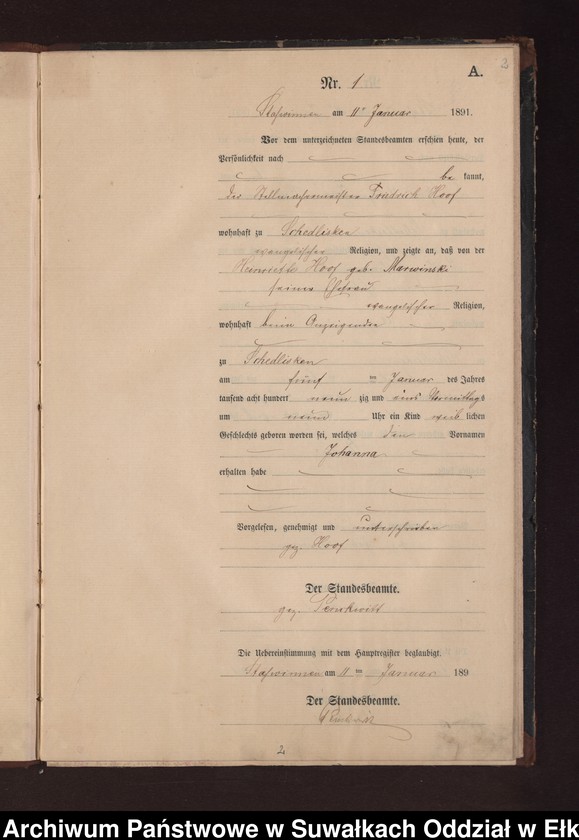 2
A.
Nr. 1
am 11ten Januar 1891.
Vor dem unterzeichneten Standesbeamten erschien heute, der
Persönlichkeit nach
be kannt,
der Stellmachermeister Friedrich Hoof
wohnhaft zu Schedlisken
evangelischer Religion, und zeigte an, daß von der
Henriette Hoof geb. Marwinski
seiner Ehefrau
evangelischer Religion,
wohnhaft beim Anzeigenden
zu Schedlisken
am fünf ten Januar des Jahres
tausend acht hundert neun zig und eins Vormittags
um neun Uhr ein Kind weib lichen
Geschlechts geboren worden sei, welches den Vornamen
Johanna
erhalten habe
Vorgelesen, genehmigt und unterschrieben
gez. Hoof
Der Standesbeamte.
gez.
Die Uebereinstimmung mit dem Hauptregister beglaubigt.
am 11 ten Januar 189
Der Standesbeamte.
2
Archiwum Państwowe w Suwałkach Oddział w Ełk